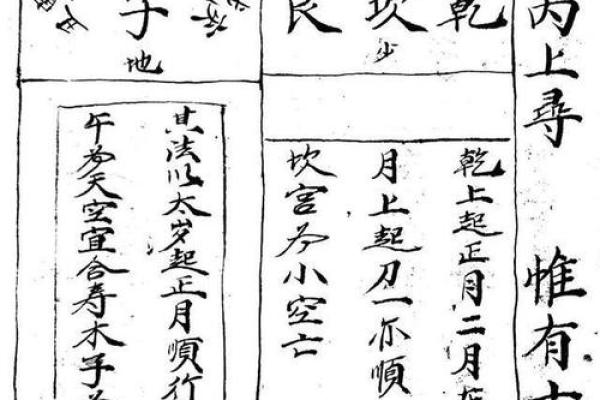 丙上尋 惟有
乾
坎少
艮
乾上起正月二月在
月上起刀一亦順
坎宮为小空亡
子地
其法以太岁起正月順行
午为天空宜合寿木子